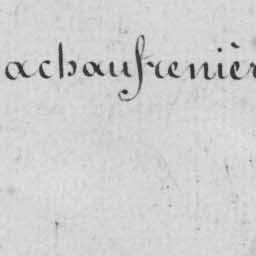 achaufrenièr